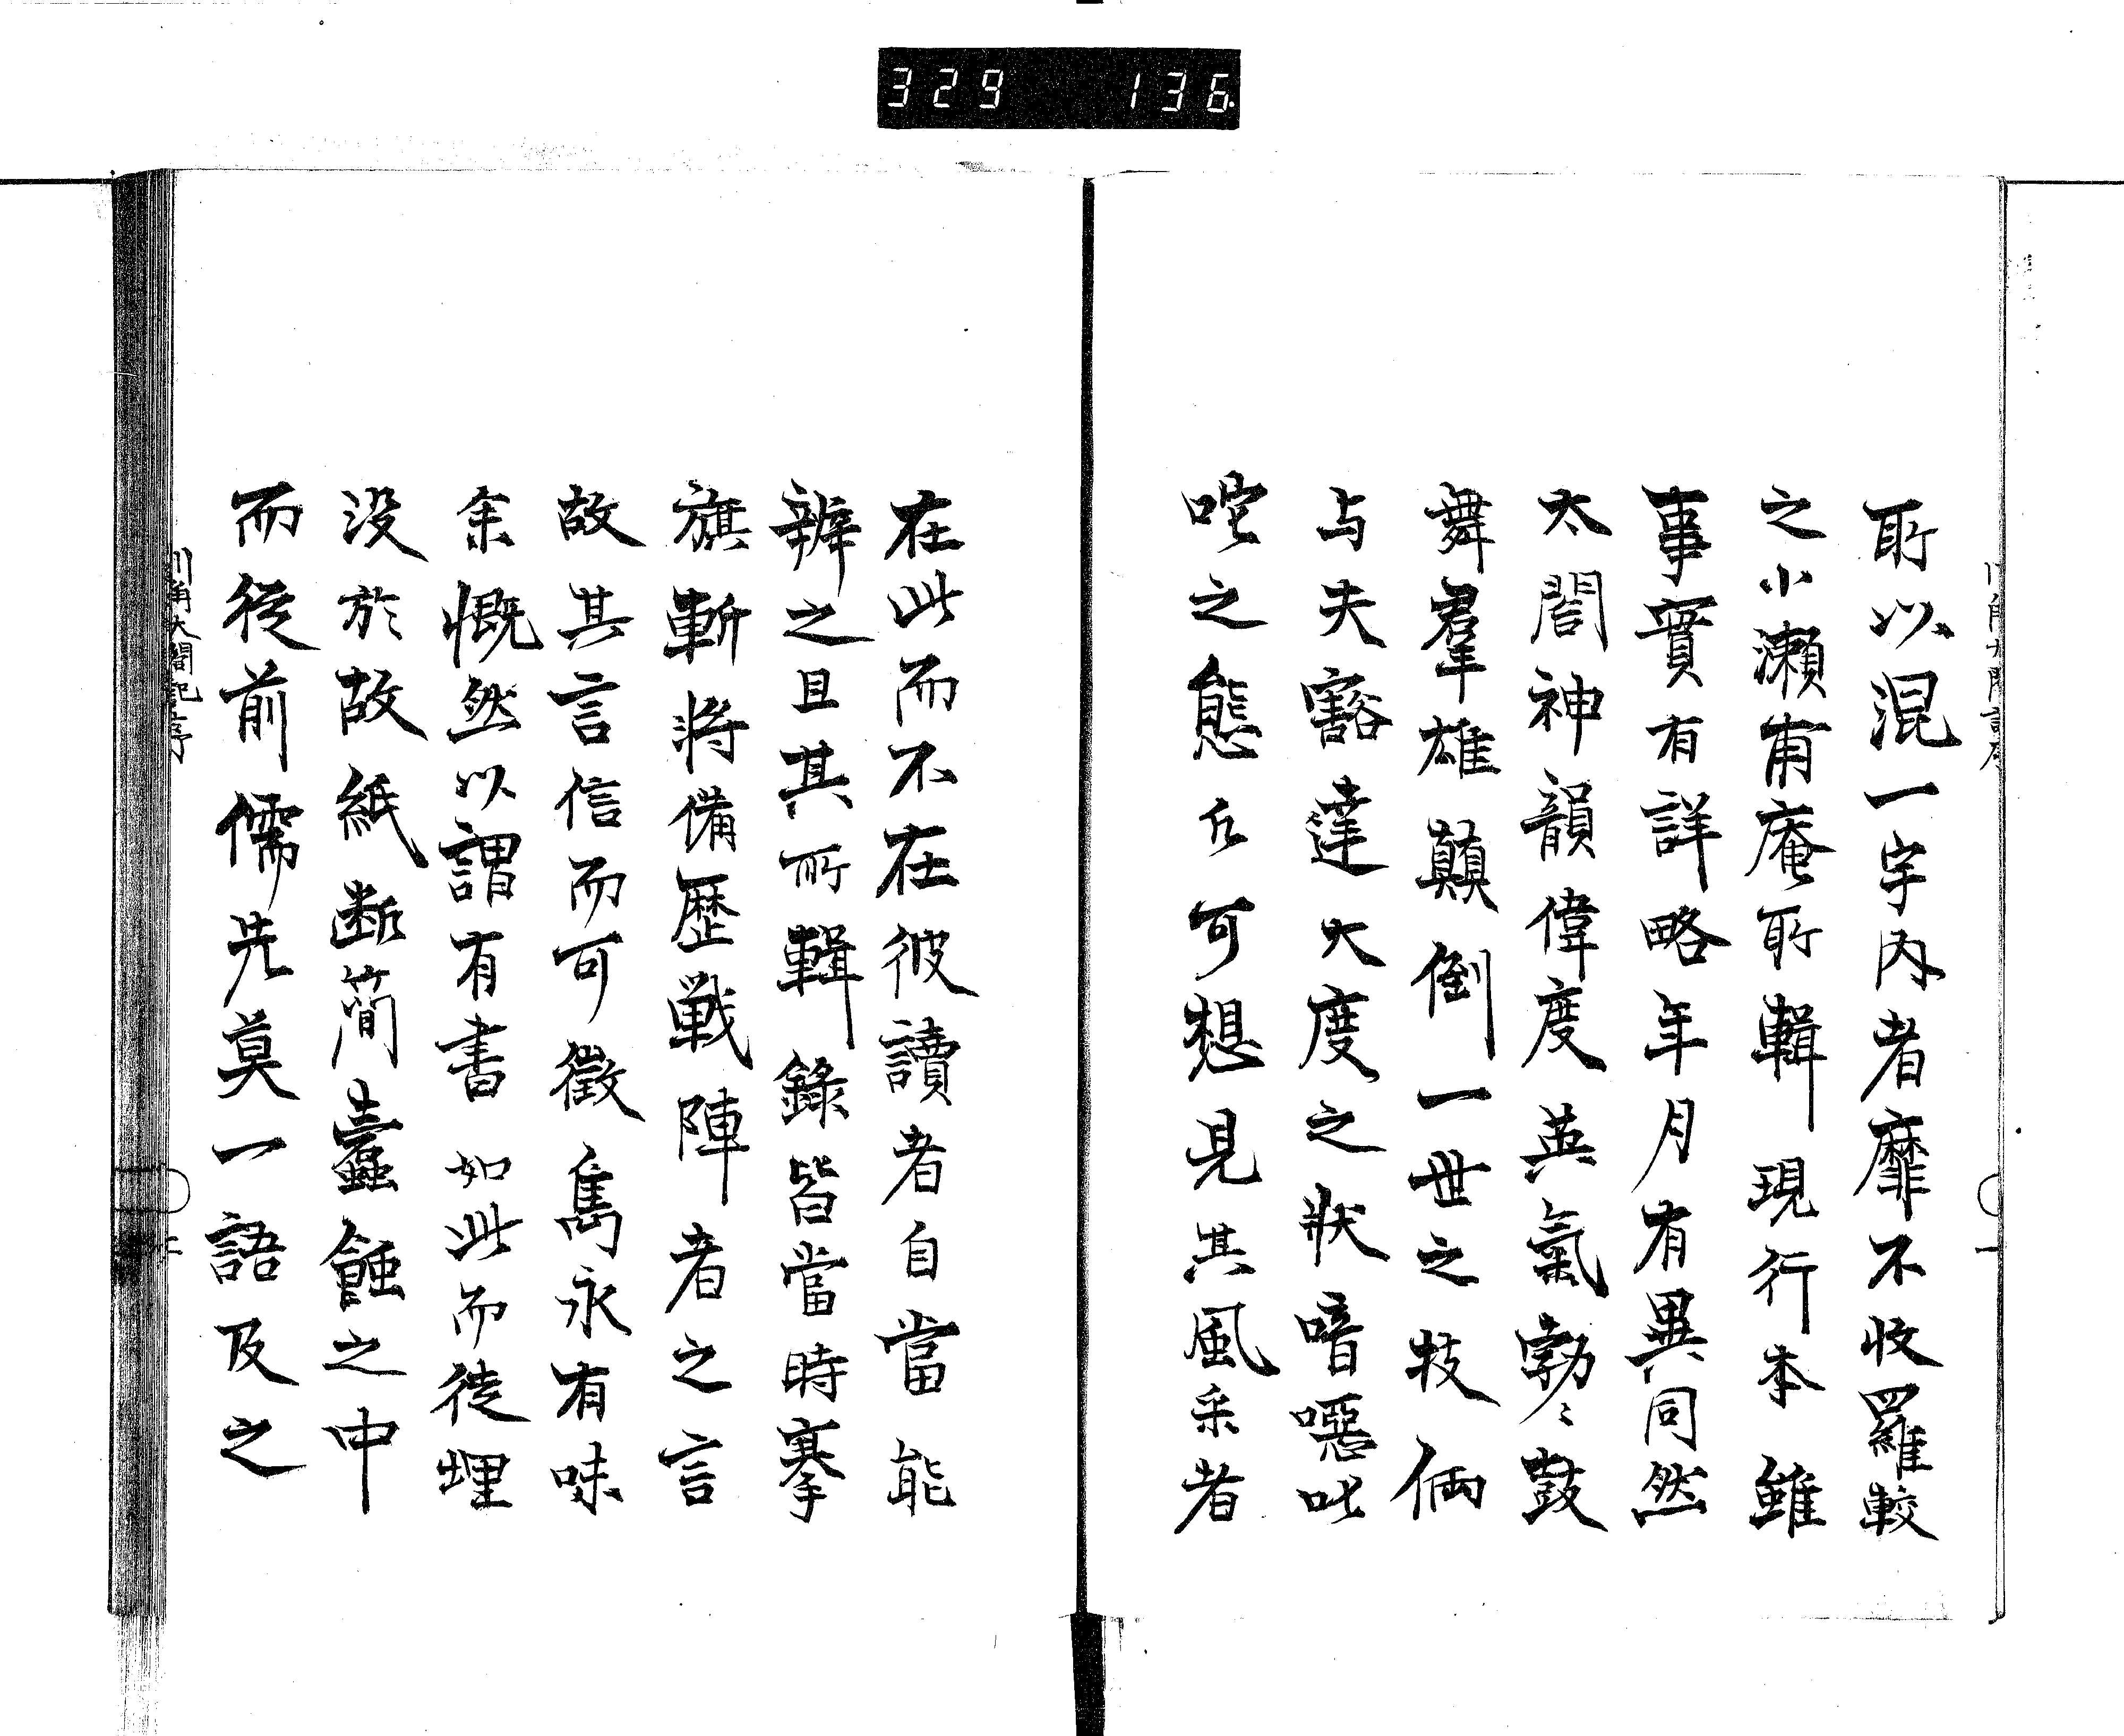 329 136
所以混一宇内者靡不收羅較
之小瀬甫庵所輯現行本雖
事實有詳略年月有異同然
太閤神韻偉度英氣勃〻鼓
舞羣雄顛倒一世之技倆
与夫豁達大度之狀喑噁叱
咤之態公可想見其風采者
在此而不在彼讀者自當能
辨之且其所輯錄皆當時搴
旗斬將備歷戰陣者之言
故其言信而可徵雋永有味
余慨然以謂有書如此而徒埋
没於故紙断簡蠹蝕之中
而從前儒先莫一語及之
川角太閤記序